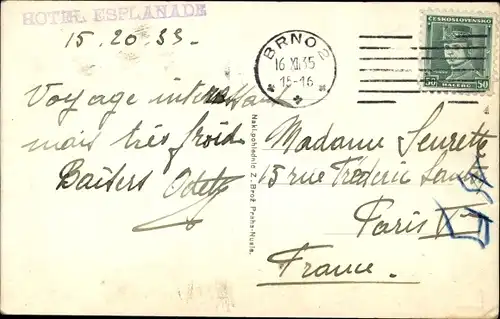 HOTEL ESPLANADE
15.20.33.
Voyage intéressant
mais très froid.
Baisers Odette
BRNO 2
16.XII.35
15-16
ČESKOSLOVENSKO
50 50
Nakl. pohlednic Z. Brož Praha-Nusle.
Madame Seurette
15 rue Frédéric
Paris V
France.